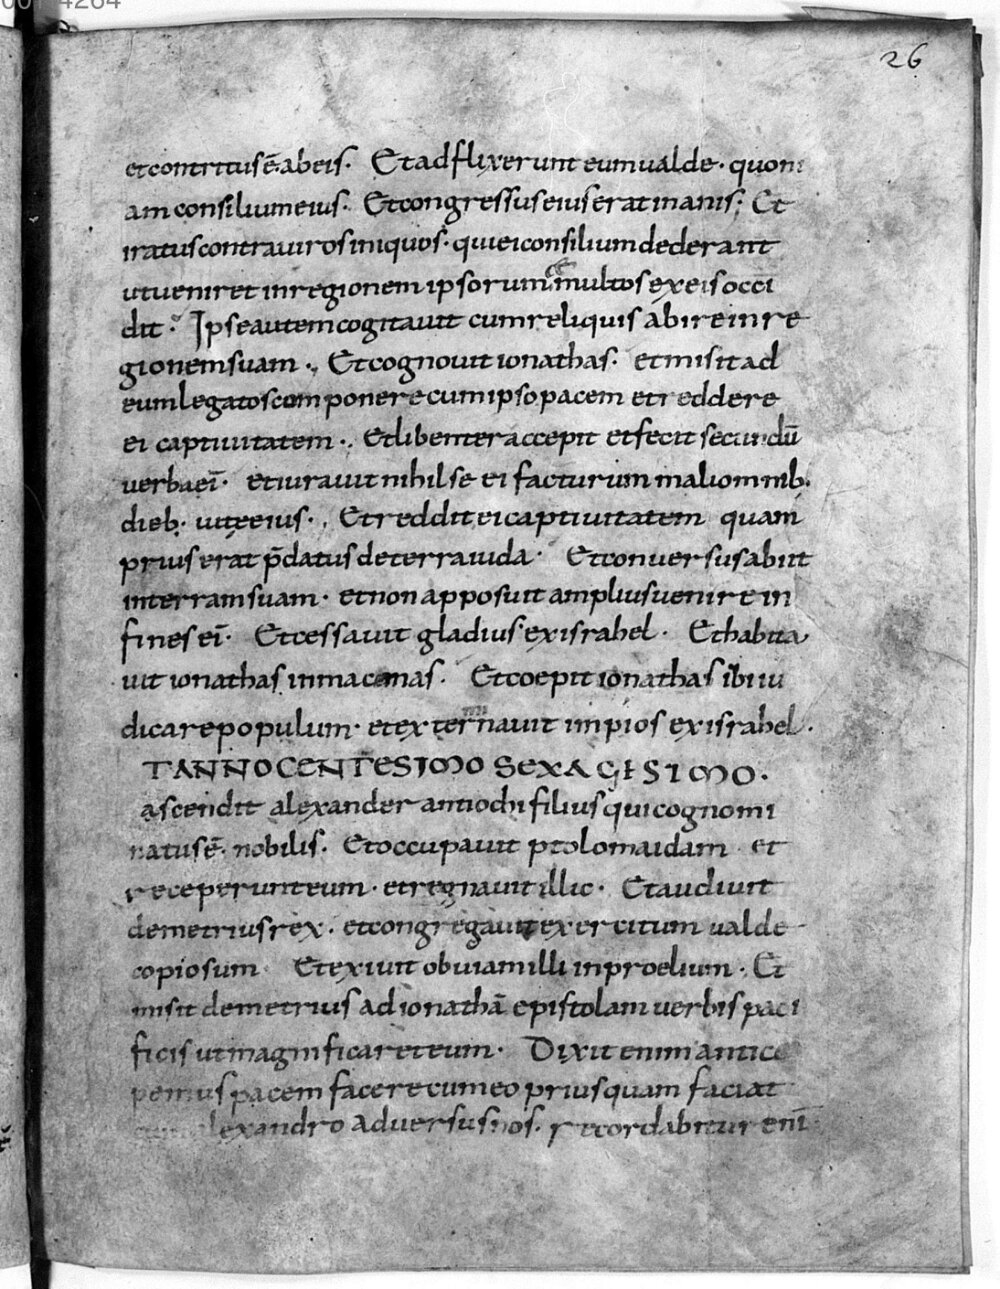 26
et contritus ē ab eis. Et adflixerunt eum valde. quoni
am consilium eius. Et congressus eius erat inanis; Et
iratus contra viros iniquos. qui ei consilium dederant
ut veniret in regionem ipsorum multos ex eis occi
dit. Ipse autem cogitavit cum reliquis abire in re
gionem suam. Et cognovit ionathas. et misit ad
eum legatos componere cum ipso pacem et reddere
ei captivitatem. Et libenter accepit et fecit secundū
verba eī. et iuravit nihil se ei facturum mali omnib.
dieb. vitę eius. Et reddit ei captivitatem quam
prius erat p̄datus de terra iuda. Et conversus abiit
in terram suam. et non apposuit amplius venire in
fines eī. Et cessavit gladius ex israhel. Et habita
vit ionathas in macmas. Et coepit ionathas ibi iu
dicare populum. et exterminavit impios ex israhel.
ET ANNO CENTESIMO SEXAGESIMO.
ascendit alexander antiochi filius qui cognomi
natus ē. nobilis. Et occupavit ptolomaidam et
receperunt eum. et regnavit illic. Et audivit
demetrius rex. et congregavit exercitum valde
copiosum Et exivit obviam illi in proelium. Et
misit demetrius ad ionathā epistolam verbis paci
ficis ut magnificaret eum. Dixit enim antici
pemus pacem facere cum eo priusquam faciat
alexandro adversus nos. recordabitur enī